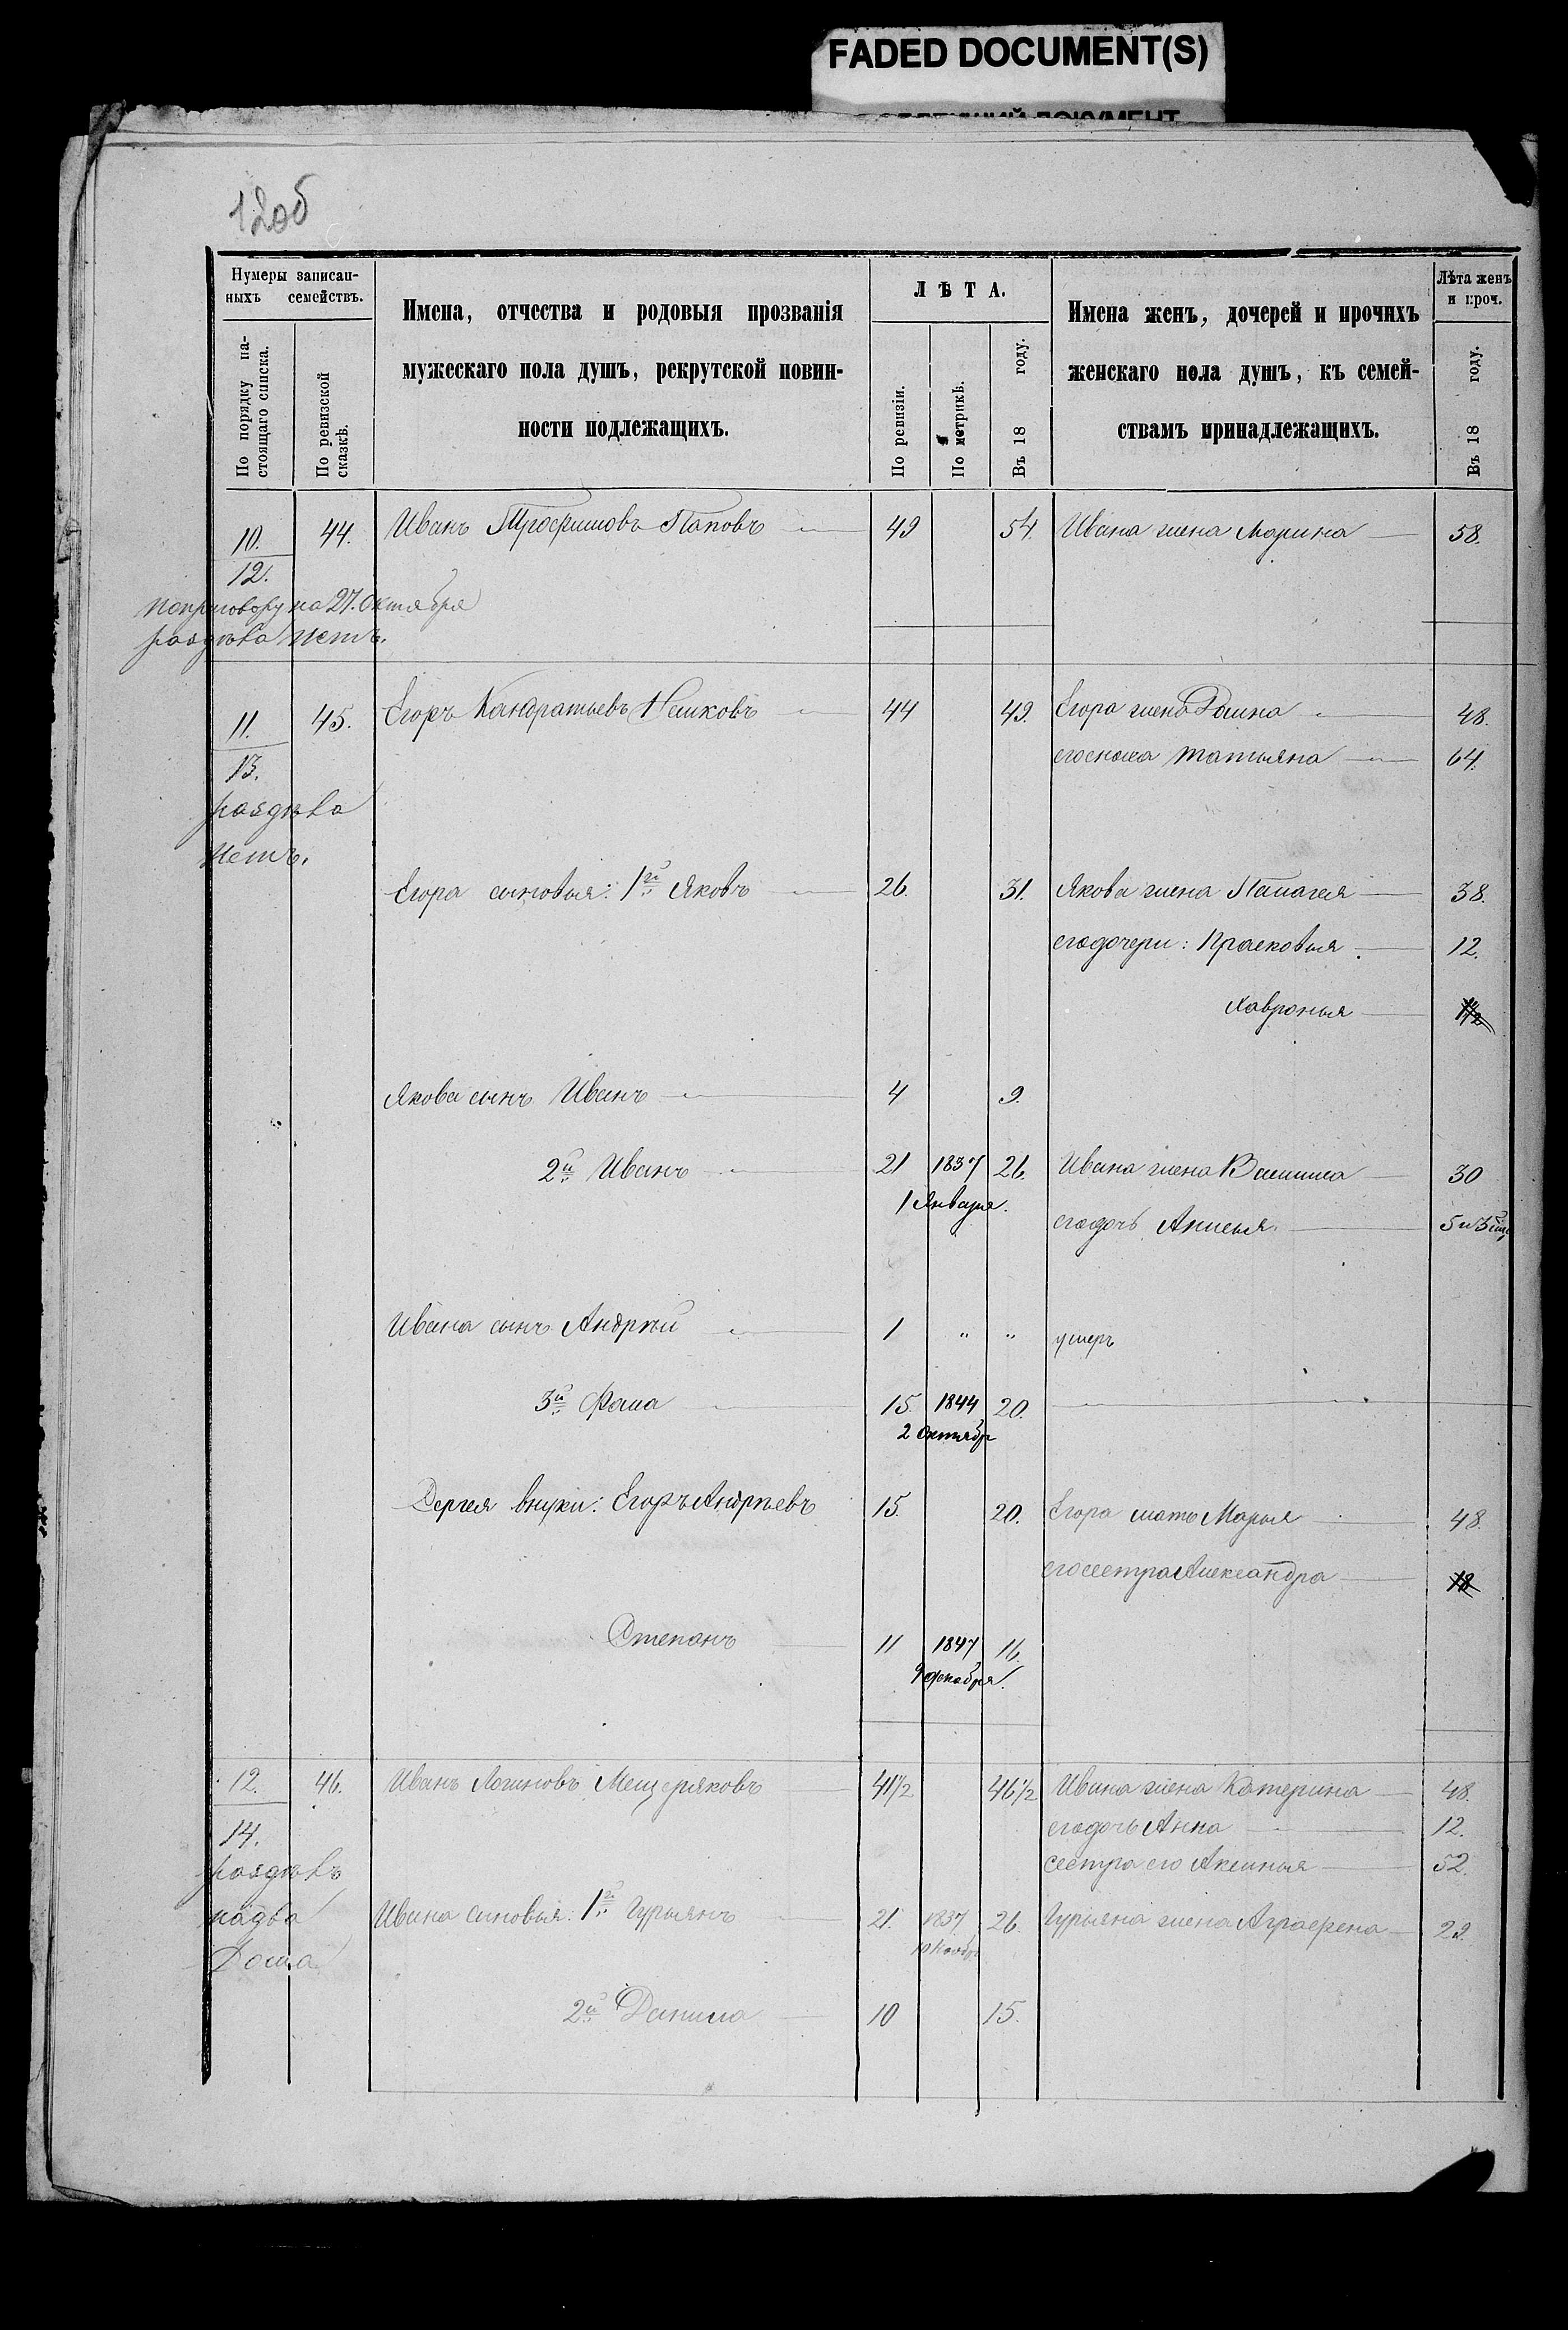 FADED DOCUMENT(S)
12об
Нумеры записан-
ныхъ семействъ.
По порядку на-
стоящаго списка.
По ревизской
сказкѣ.
Имена, отчества и родовыя прозванія
мужескаго пола душъ, рекрутской повин-
ности подлежащихъ.
ЛѢТА.
По ревизіи.
По метрикѣ.
Въ 18 году.
Имена женъ, дочерей и прочихъ
женскаго пола душъ, къ семей-
ствамъ принадлежащихъ.
Лѣта женъ
и проч.
Въ 18 году.
10. 44. Иванъ Трофимовъ Паповъ 49 54. Ивана жена Марина 58.
12.
поприговору на 27. Октября
раздѣла нетъ.
11. 45. Егоръ Кандратьевъ 44 49. Егора жена 48.
13. Татьяна 64.
раздѣла
нетъ.
Егора сыновья: 1й Яковъ 26. 31. Якова жена Палагея 38.
егодочери: Прасковья 12.
Хавронья
Якова сынъ Иванъ 4 9.
2й Иванъ 21 1837 26. Ивана жена 30
1 Января.
егодочь Анисья 5
Ивана сынъ Андрѣй 1 " " умеръ
3й Фама 15. 1844 20.
2 Октябр
Сергея внуки: Егоръ Андрѣевъ 15. 20. Егора мать Марья 48.
егосестра Александра 18
Степанъ 11 1847 16.
9 декабря.
12. 46. Иванъ Логиновъ Мещеряковъ 41½ 46½ Ивана жена Катерина 48.
14. егодочь Анна 12.
раздѣлъ сестра его Аксинья 52.
надва Ивана сыновья: 1й Гурьянъ 21. 1837 26. Гурьяна жена Аграфена 29.
Дома 10 Ноябр
2й Данила 10 15.